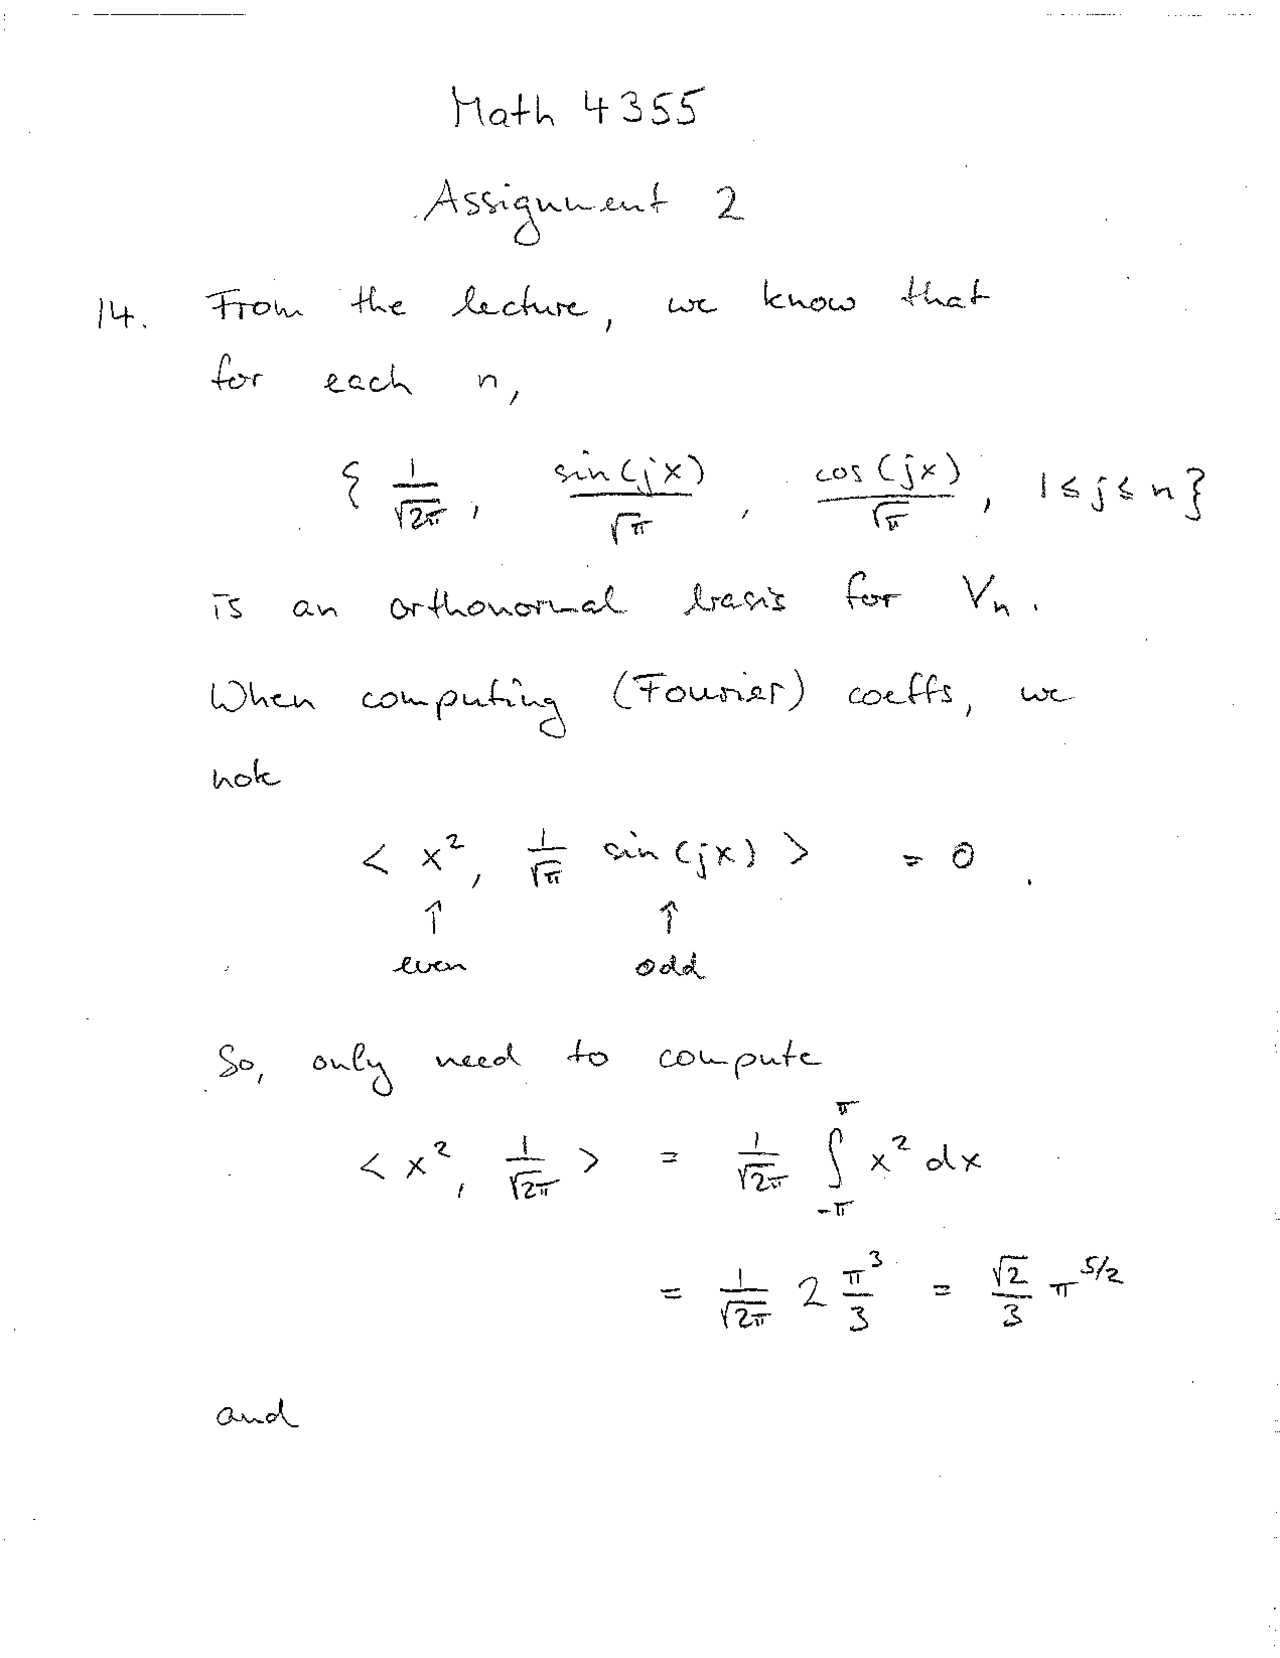 Math 4355
Assignment 2
14. From the lecture, we know that
for each n,
{ 1/√2π, sin(jx)/√π, cos(jx)/√π, 1≤j≤n}
is an orthonormal basis for Vₙ.
When computing (Fourier) coeffs, we
note
< x², 1/√π sin(jx) > = 0.
↑ ↑
even odd
So, only need to compute
< x², 1/√2π > = 1/√2π ∫_{-π}^{π} x² dx
= 1/√2π 2 π³/3 = √2/3 π^{5/2}
and